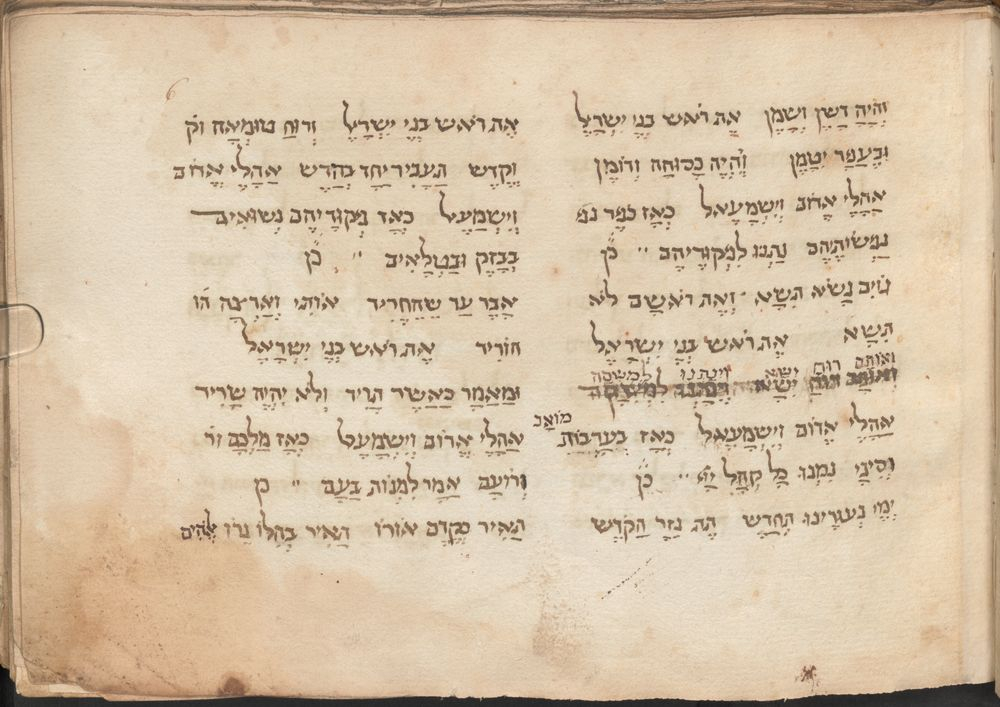 והיה דשן ושמן את ראש בני ישראל
ובעפר יטמן והיה כסוחה ודומן
אהלי אדום וישמעאל כאז כפר נפ
נפשותיהם נתנו לפקודיהם כן
טוב נשא תשא ואת ראשם לא
תשא את ראש בני ישראל
ואותם רוח ישא וינתנו למשסה
אהלי אדום וישמעאל כאז בערבות מואב
וסיני נמנו כל קהל יי כן
ימי נעורינו תחדש תת נזר הקדש
6
את ראש בני ישראל ורוח טומאה וק
וקדש תעביר יחד בקדש אהלי אדום
וישמעאל כאז פקודיהם נשואים
בבזק ובטלאים כן
אבד עד שהחריד אותי וארצה הו
הוריד את ראש בני ישראל
ומאמר כאשר תריד ולא יהיה שריד
אהלי אדום וישמעאל כאז מלכם זו
ורועם אמר למנות בעם כן
תאיר מקדם אורו תאיר בהלו נרו אלהים